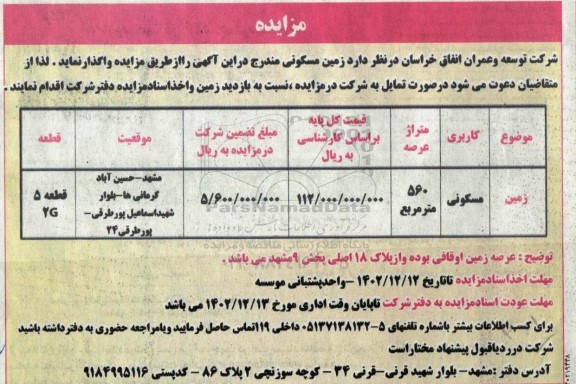 مزایده
شرکت توسعه وعمران انفاق خراسان درنظر دارد زمین مسکونی مندرج دراین آگهی رااز‌طریق مزایده واگذارنماید . لذا از
متقاضیان دعوت می شود درصورت تمایل به شرکت درمزایده ،نسبت به بازدید زمین واخذاسنادمزایده دفترشرکت اقدام نمایند .
موضوع
کاربری
متراژ عرصه
قیمت کل پایه براساس کارشناسی به ریال
مبلغ تضمین شرکت درمزایده به ریال
موقعیت
قطعه
زمین
مسکونی
۵۶۰ مترمربع
۱۱۲/۰۰۰/۰۰۰/۰۰۰
۵/۶۰۰/۰۰۰/۰۰۰
مشهد-حسین آباد
کرمانی ها-بلوار
شهیداسماعیل پورطرقی-
پورطرقی۲۴
قطعه ۵
2G
ParsNamadData
پایگاه اطلاع رسانی مناقصه و مزایده
توضیح : عرصه زمین اوقافی بوده وازپلاک ۱۸ اصلی بخش ۹مشهد می باشد .
مهلت اخذاسنادمزایده تاتاریخ ۱۴۰۲/۱۲/۱۲ -واحدپشتبانی موسسه
مهلت عودت اسنادمزایده به دفترشرکت تاپایان وقت اداری مورخ ۱۴۰۲/۱۲/۱۳ می باشد
برای کسب اطلاعات بیشتر باشماره تلفنهای ۵-۰۵۱۳۷۱۳۸۱۳۲ داخلی ۱۱۹تماس حاصل فرمایید ویامراجعه حضوری به دفترداشته باشید
شرکت درردیاقبول پیشنهاد مختاراست
آدرس دفتر :مشهد- بلوار شهید قرنی-قرنی ۳۴ - کوچه سوزنچی ۲ پلاک ۸۶ - کدپستی ۹۱۸۴۹۹۵۱۱۶